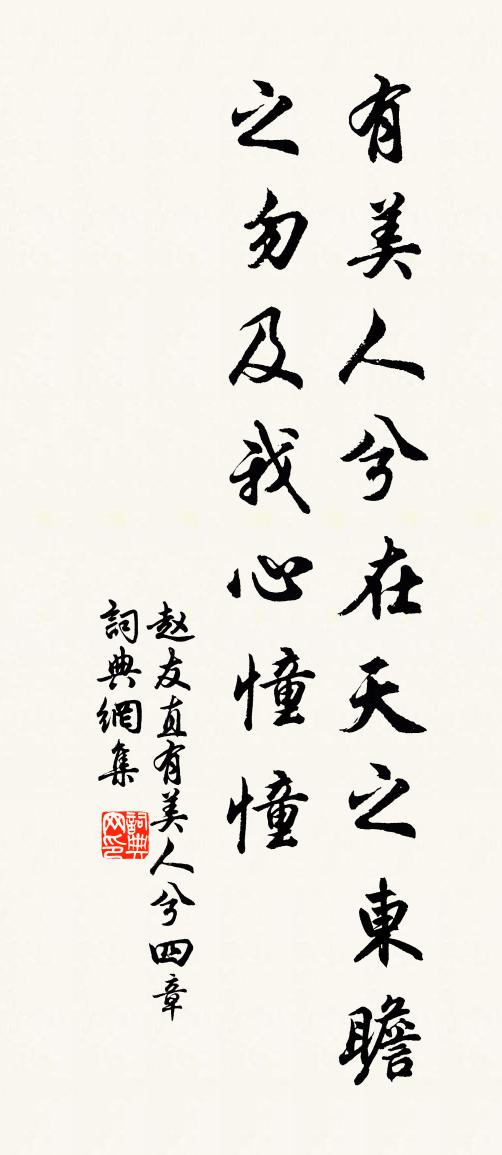 有美人兮在天之東瞻
之勿及我心憧憧
赵友直有美人兮四章
詞典網集
詞典网印